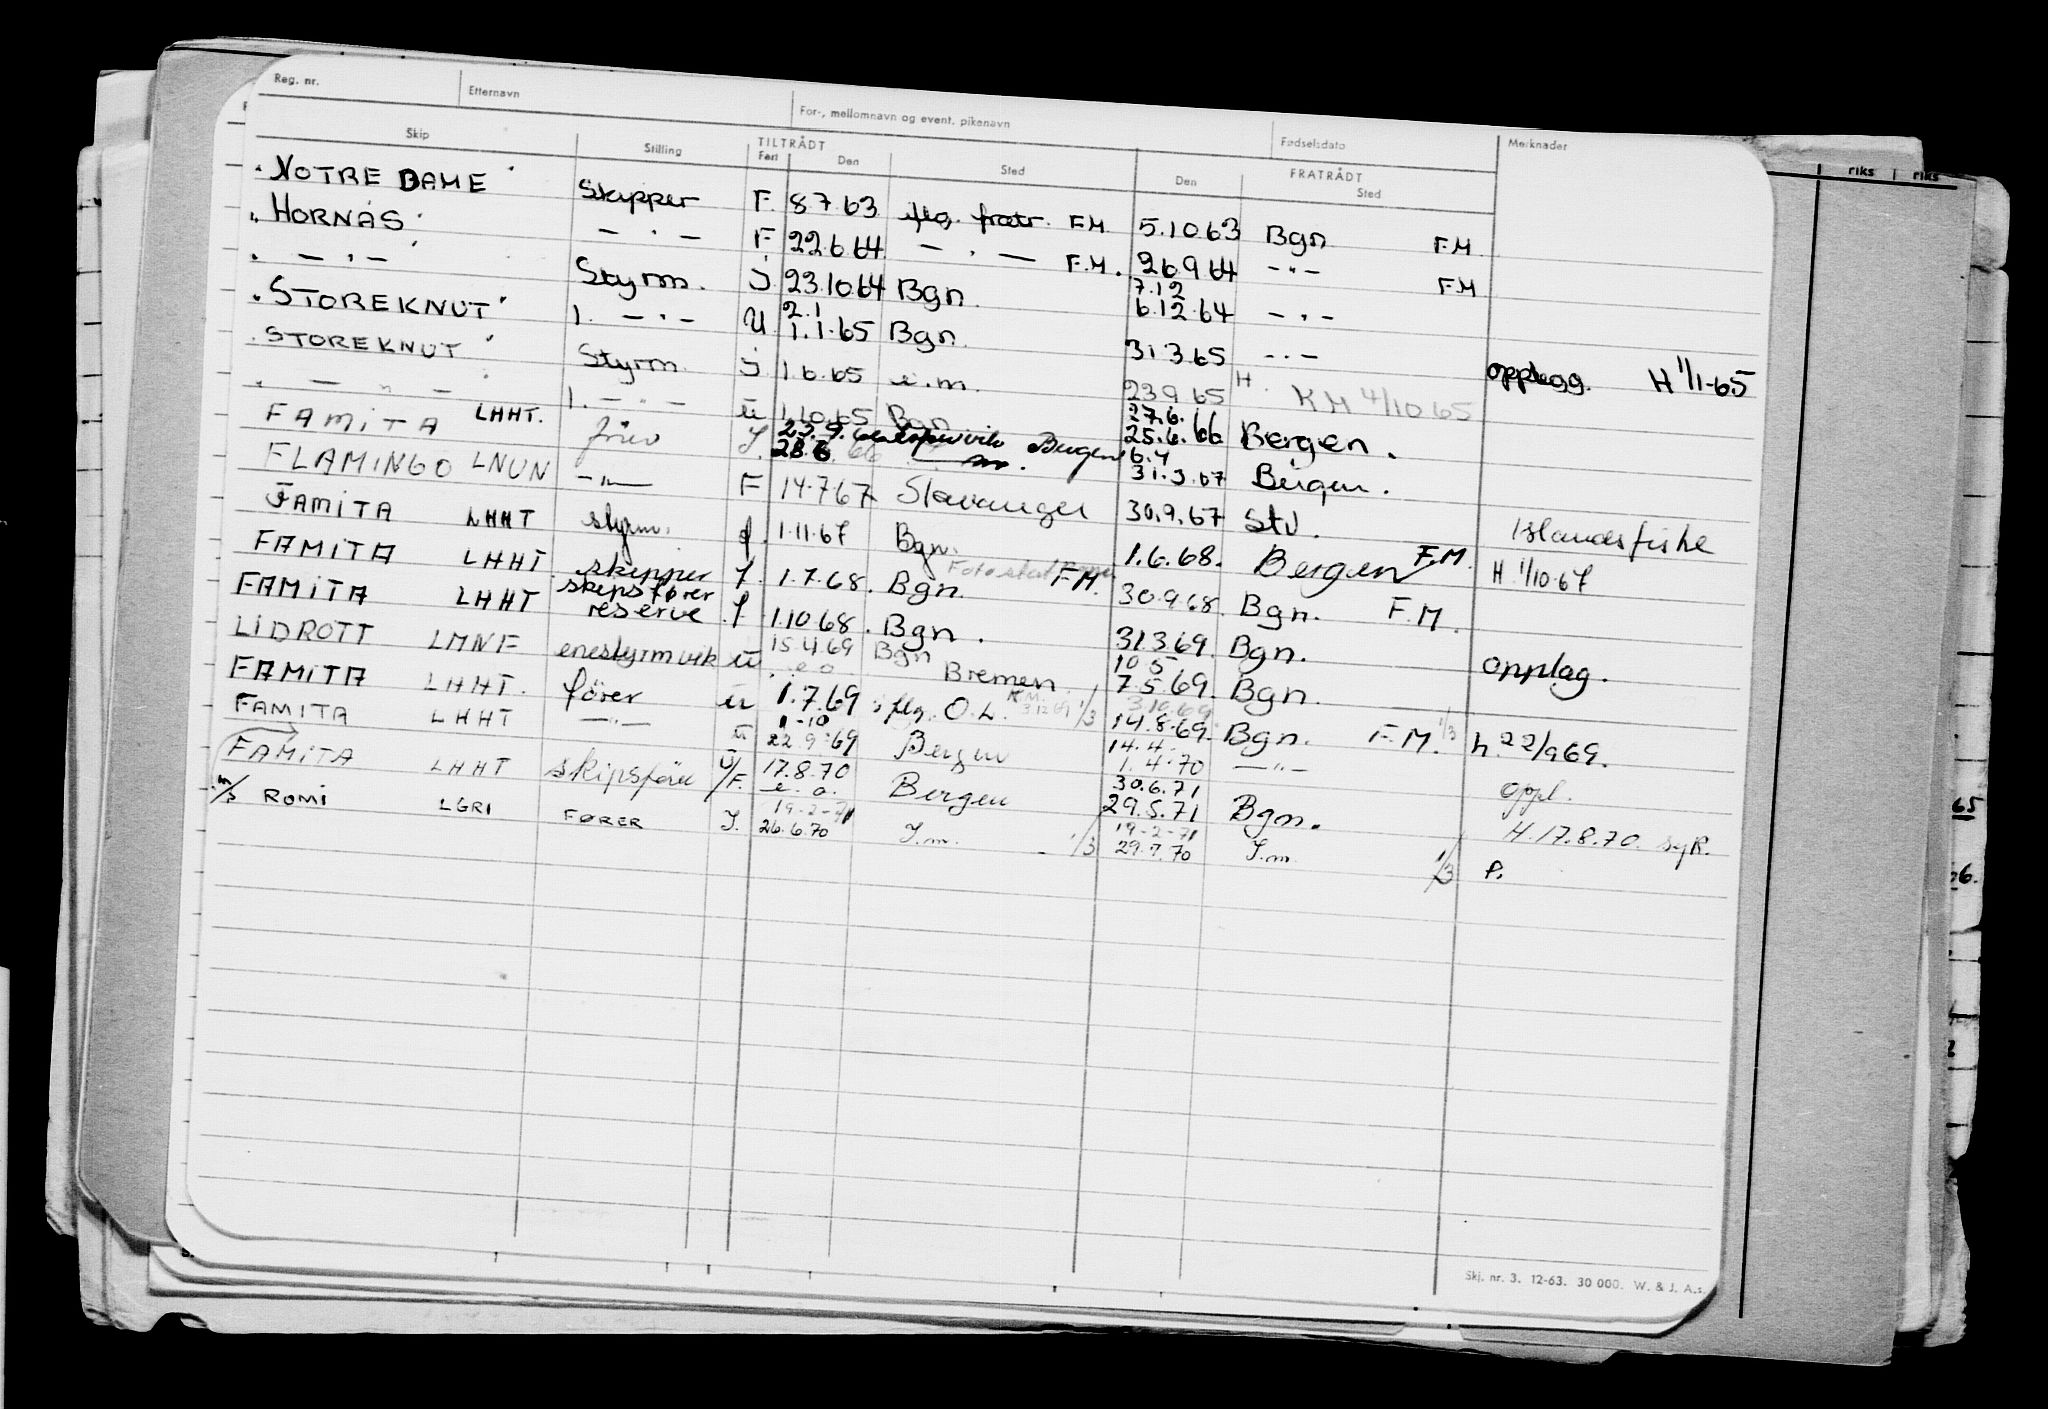 Reg. nr. Etternavn For-, mellomnavn og event. pikenavn Fødselsdato Merknader
Skip Stilling TILTRÅDT FRATRÅDT
Fart Den Sted Den Sted
riks riks
"NOTRE DAME" Skipper F. 8 7 63 flg. fratr. F.M. 5.10 63 Bgn F.M.
"HORNÅS" — " — F 22.6 64 — " — F.M. 26.9 64 — " — F.M
" — " — Styrm. J 23.10 64 Bgn. 7.12 6.12 64 — " —
"STOREKNUT" 1. — " — U 2.1 1.1.65 Bgn. 31 3 65 — " — opplegg. H 1/1-65
"STOREKNUT" Styrm. J 1.6.65 e.m. 23 9 65 H. KM 4/10 65
" — " — 1. — " — ü 1.10.65 Bgn 27.6. 25.6.66 Bergen.
FAMITA LHHT. 28.6 66 Bergen 6.4 31.3.67 Bergen.
FLAMINGO LNUN — " — F 14.7.67 Stavanger 30.9.67 Stv. Islandsfiske
FAMITA LHHT styrm. 1.11.67 Bgn. 1.6.68. Bergen F.M. H 1/10.67
FAMITA LHHT. skipper 1.7.68. Bgn. F.M. 30.9.68. Bgn. F.M.
FAMITA LHHT skipsfører reserve 1.10 68. Bgn. 31.3 69. Bgn. opplag.
LIDROTT LMNF enestyrm vik ü 15.4.69 Bgn 10 5
e o Bremen. 7.5.69. Bgn.
FAMITA LHHT. fører ü 1.7.69 flg. O.L. 3.12 69 1/3 3.10.69 14.8.69. Bgn. F.M. 1/3 h. 22/9 69.
FAMITA LHHT — " — ü 1-10 22.9.69 Bergen 14.4. 1.4.70 — " — oppl.
FAMITA LHHT skipsfører Ü/F. 17.8.70 e.o. Bergen 30.6.71 29.5.71 Bgn. H. 17.8.70. syk.
m/s ROMI LGRI FØRER J. 19-2-71 26.6.70 J.m. 1/3 19-2-71 29.7.70 J.m. 1/3 P.
65
26.
Skj. nr. 3. 12-63. 30 000. W. & J. A.s.